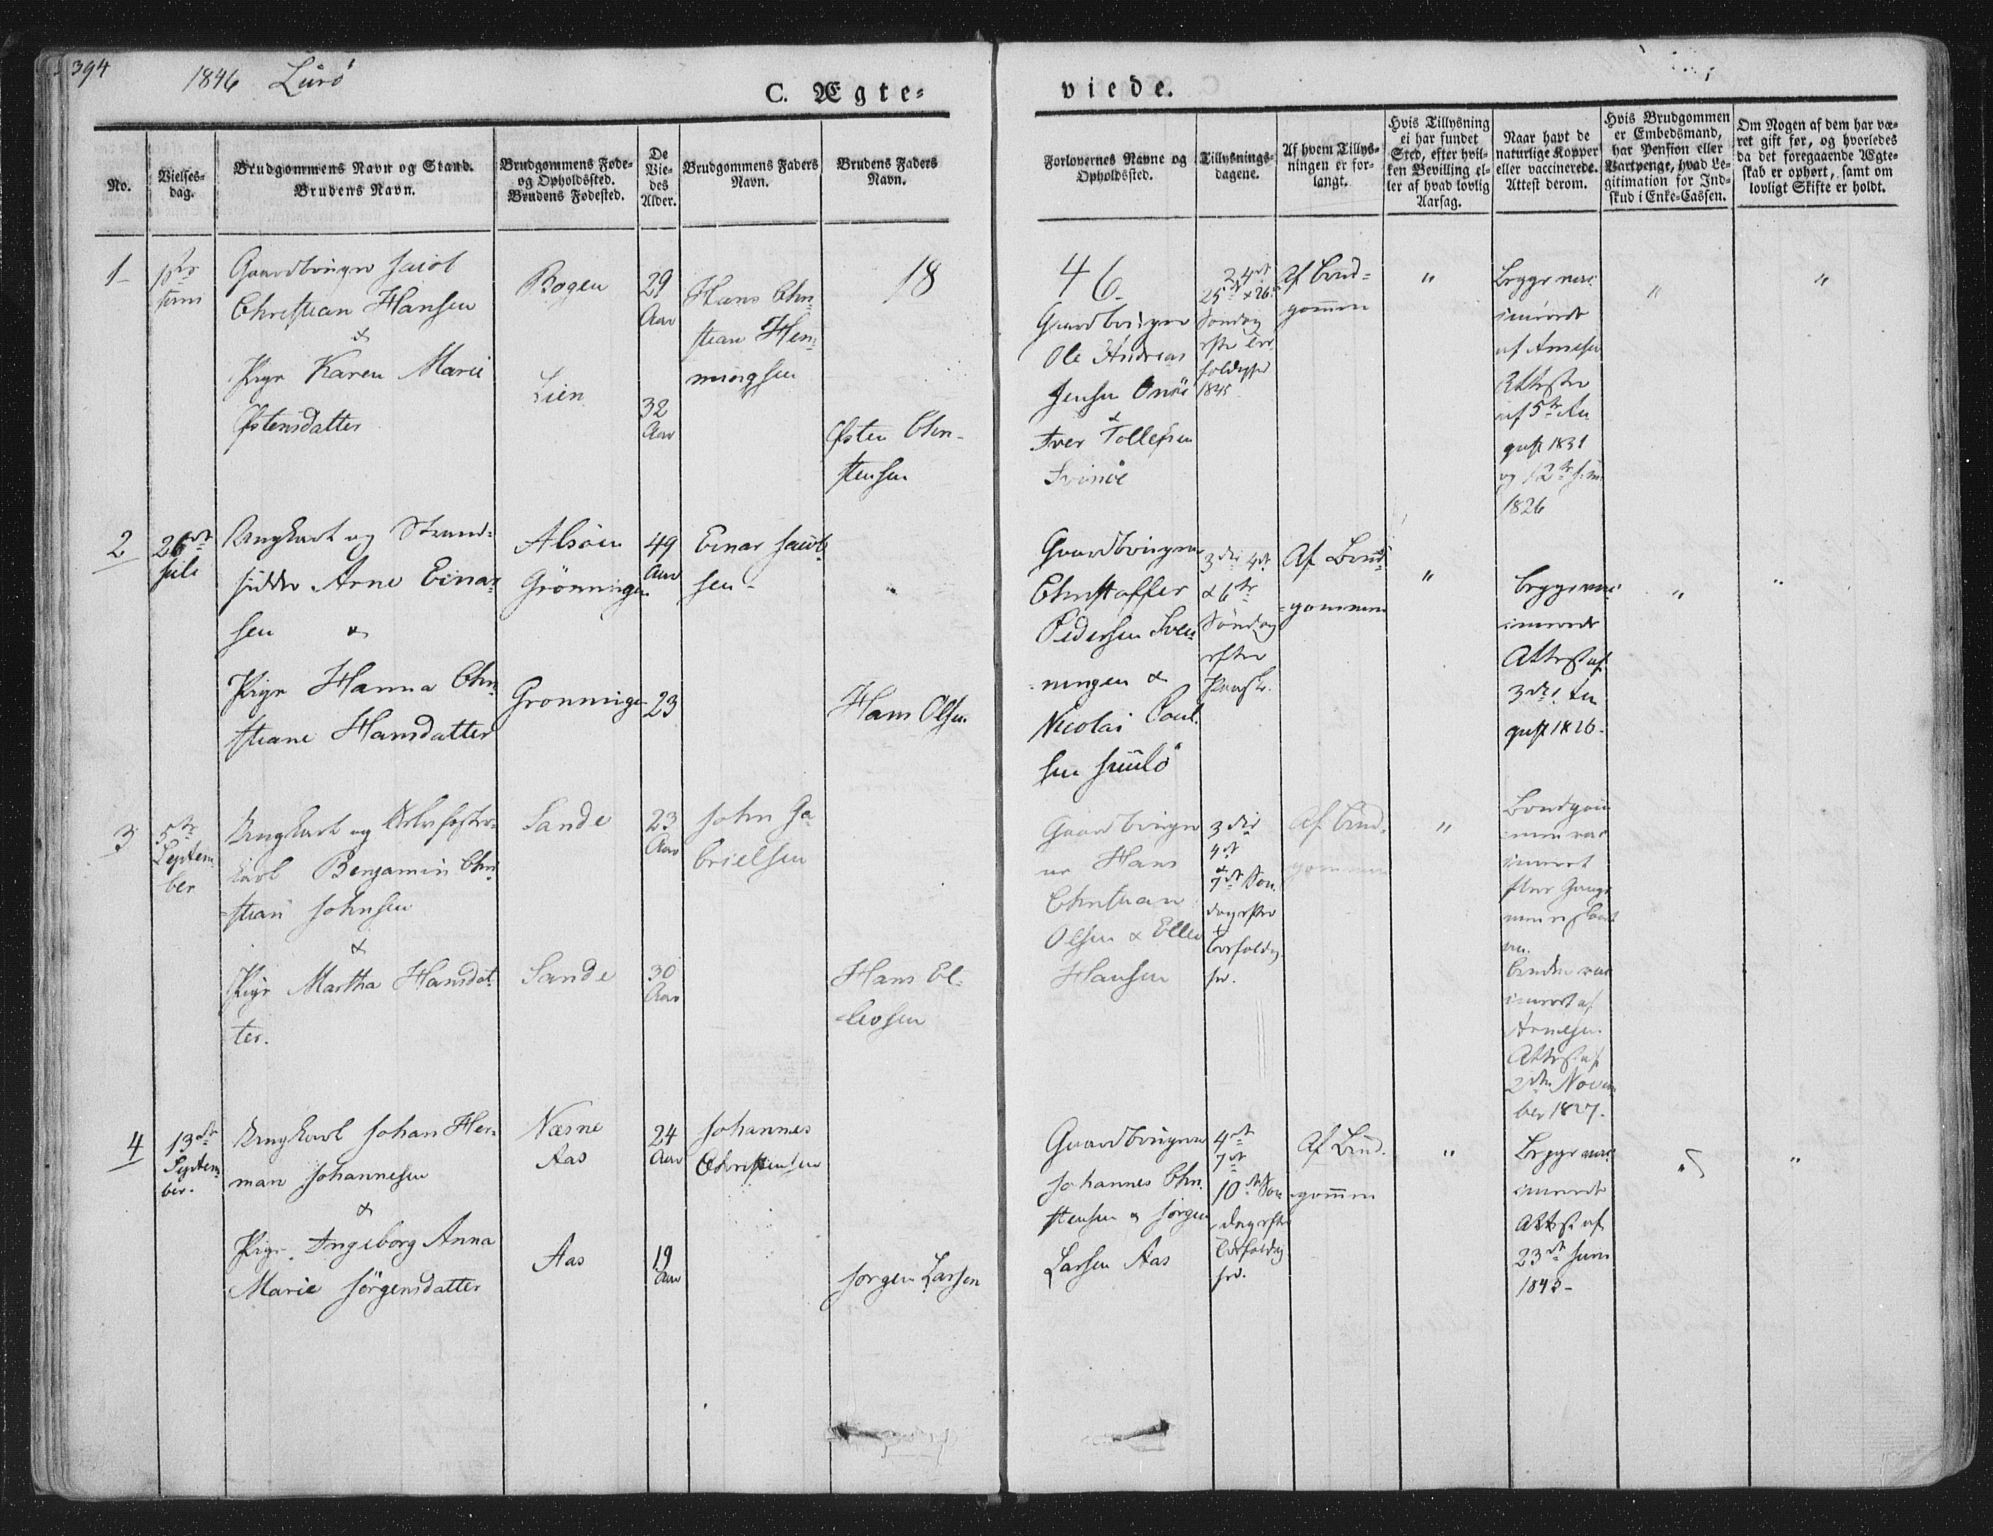 394
1846 Lurö
C. Ægte-
viede.
No.
Vielses-
dag.
Brudgommens Navn og Stand.
Brudens Navn.
Brudgommens Føde-
og Opholdssted.
Brudens Fødested.
De
Vie-
des
Alder.
Brudgommens Faders
Navn.
Brudens Faders
Navn.
Forlovernes Navne og
Opholdssted.
Tillysnings-
dagene.
Af hvem Tillys-
ningen er for-
langt.
Hvis Tillysning
ei har fundet
Sted, efter hvil-
ken Bevilling el-
ler af hvad lovlig
Aarsag.
Naar havt de
naturlige Kopper
eller vaccinerede.
Attest derom.
Hvis Brudgommen
er Embedsmand,
har Pension eller
Vartpenge, hvad Le-
gitimation for Ind-
skud i Enke-Cassen.
Om Nogen af dem har væ-
ret gift før, og hvorledes
da det foregaaende Ægte-
skab er ophørt, samt om
lovligt Skifte er holdt.
18
46.
1
Gaardbruger Jacob
Christian Hansen
&
Pige Karen Marie
Østensdatter
Bogen
Lien
29
Aar
32
Aar
Hans Chri-
stian Hen-
ningsen
Østen Chri-
stensen
Gaardbruger
Ole Andreas
Jensen
&
Iver Tollefsen
Svinöe
24de
25de & 26
Søndag
1845
Af Brud-
gommen
"
Begge vac-
cinerede
af Arnesen
Attester
af 5te Au
gust 1831
1826
"
"
2
26de
Juli
Ungkarl og Strand-
sidder Arne Einar
sen &
Pige Hanna Chri
stiane Hansdatter
Alsöen
Grönningen
Grønninge
49
Aar
23
Einar Jacob
sen
"
Hans Olsen
Gaardbruger
Christoffer
Pedersen Sven
ningen &
Nicolai Poul
sen
3die 4de
& 6te
Søndag
efter
Af Brud-
gommen
"
Begge vac-
cinerede
Attest af
3die Au
gust 1826.
"
"
3
5te
Septem
ber
Ungkarl og
karl Benjamin Chri
stian Johnsen
&
Pige Martha Hansdat
ter.
Sande
Sande
23
Aar
30
Aar
John Ga-
brielsen
Hans El-
levsen
Gaardbruger
ne Hans
Christian
Olsen & Ellev
Hansen
3die
4de
&
7de Søn
dag efter
Af Brud-
gommen
"
Brudgom
men vac
cineret
Bruden vac
cineret af
Arnesen
Attest af
2den Novem
ber 1827.
4
13de
Septem
ber.
Ungkarl Johan Her-
man Johannesen
&
Pige Ingeborg Anna
Marie Jörgensdatter
Næsne
Aas
Aas
24
Aar
19
Aar
Johannes
Christensen
Jørgen Larsen
Gaardbrugerne
Johannes Chri
stensen & Jørgen
Larsen Aas
4de
7de
10de Søn
dag efter
Af Brud-
gommen
"
Begge vac-
cinerede
Attest af
23de Juni
1843-
"
"